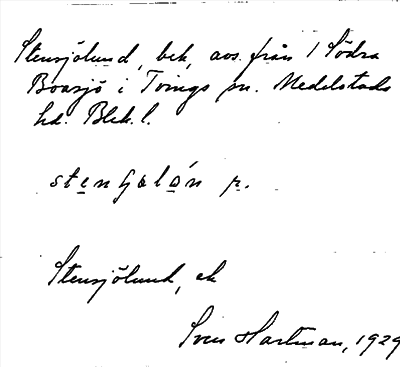 Stensjölund, bek, avs. från 1 Södra
Boasjö i Tvings sn. Medelstads
hd. Blek. l.
stenʃəlón
Stensjölund, ek
Sven Hartman, 1929